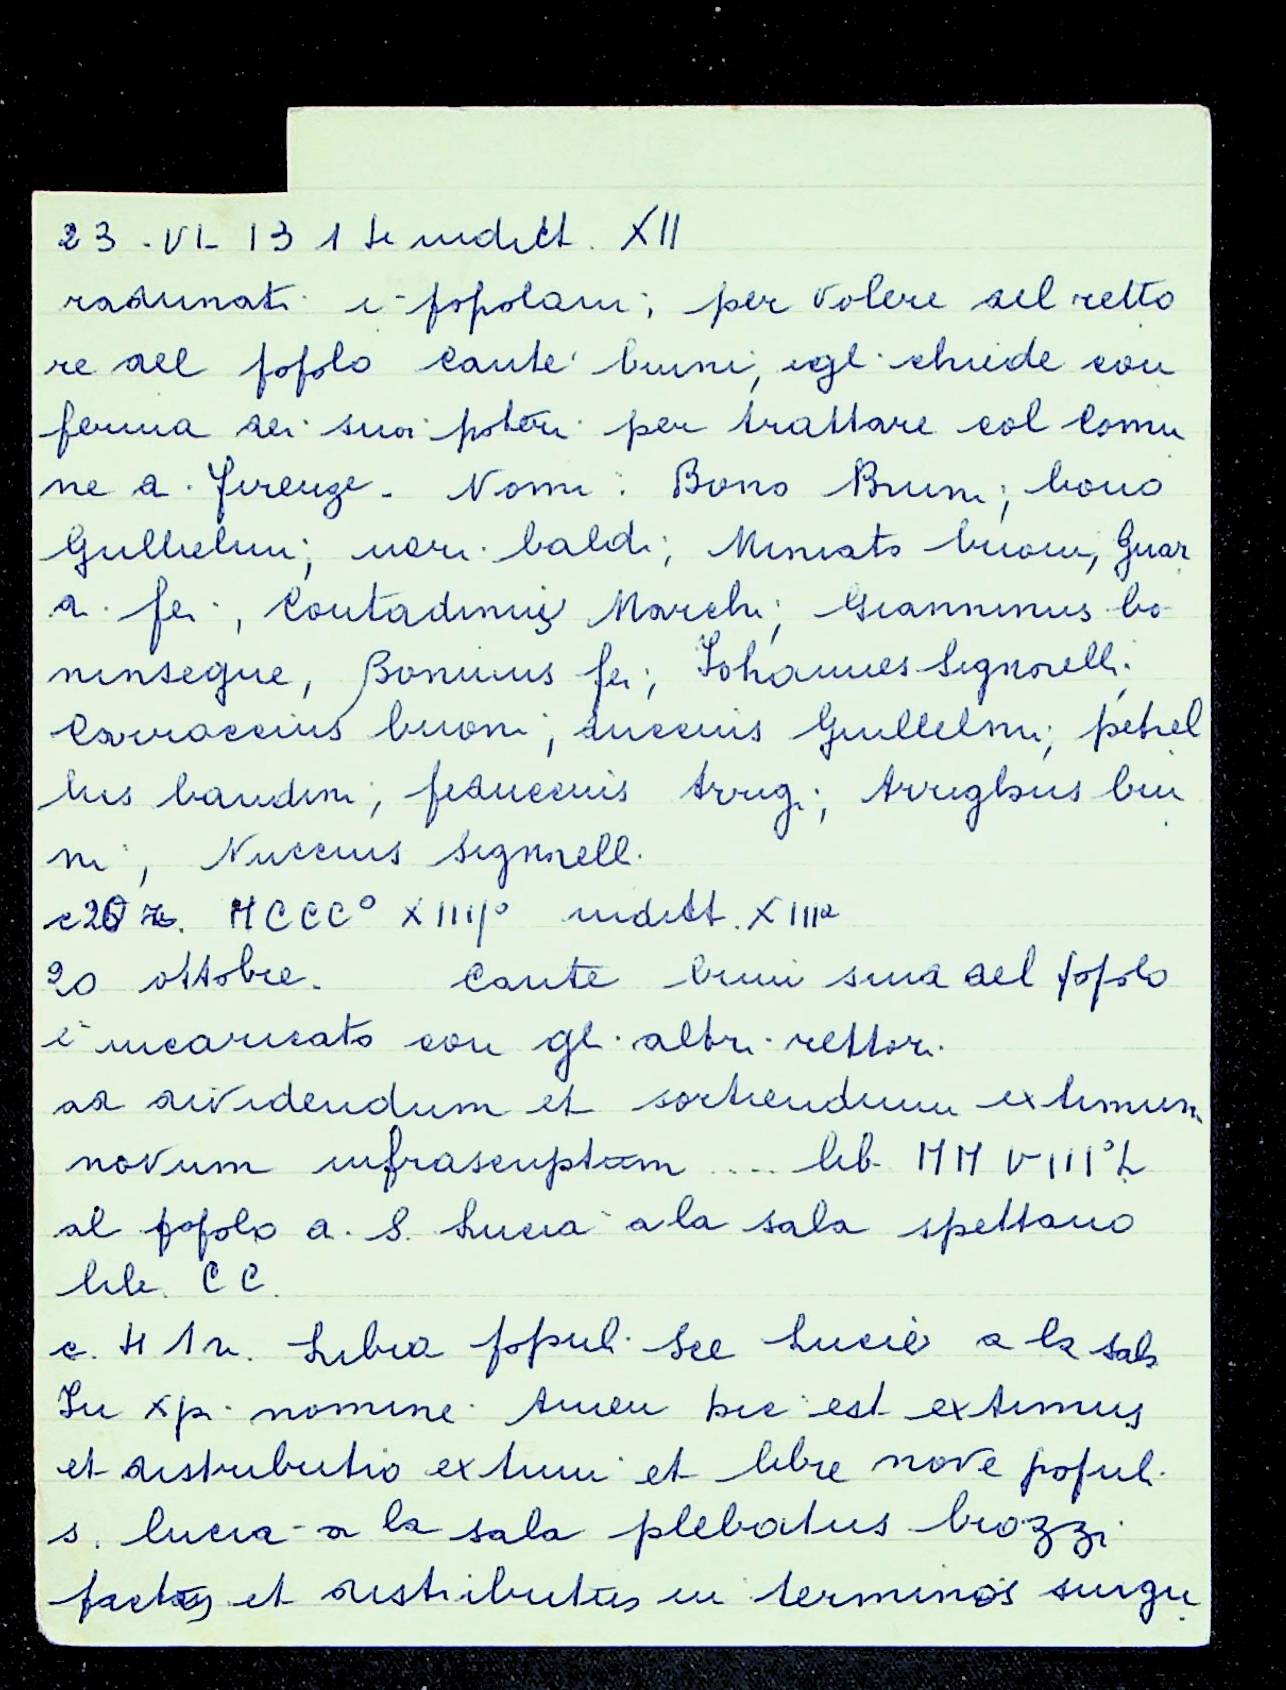 23 . VI. 1314 indict. XII
radunati i popolani; per volere del retto
re del popolo Cante bruni, egli chiede con
ferma dei suoi poteri per trattare col Comu
ne di Firenze. Nomi: Bono Bruni; bono
Gullielmi; neri baldi; Miniato buoni, Guar
di fei; Contadinus Marchi; Gianninus bo
ninsegne, Boninus fei; Johannes Signorelli;
Carroccius buoni; tuccius Gullelmi; petrel
lus bandini; feduccius Arrigi; Arrighus bru
ni; Nuccius Signorelli.
c20 MCCC° XIIII° indict. XIIIa
20 ottobre. Cante bruni sind del popolo
è incaricato con gli altri rettori
ad dividendum et sortiendum extimum
novum infrascriptum .... lib. MM VIII°L
al popolo di S. Lucia a la sala spettano
lib. CC.
c. 41r. Libra populi Sce Lucie a la sala
In xpi nomine Amen hic est extimus
et distributio extimi et libre nove populi
s. lucia a la sala plebatus brozzi
factus et distributus in terminos singu